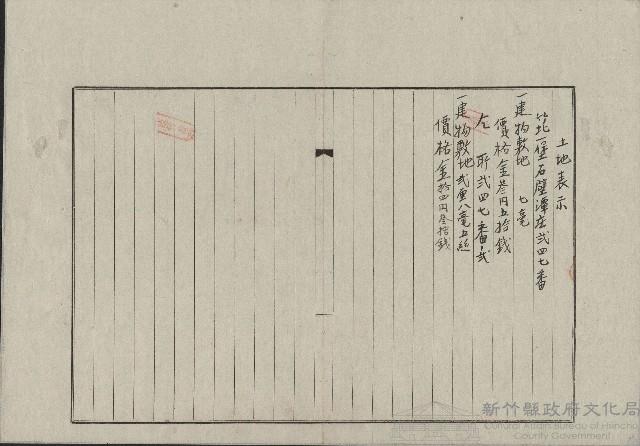 土地表示
竹北一堡石壁潭庄弍四七番
一建物敷地 七毫
價格金叁円五拾錢
仝所弍四七番ノ弍
一建物敷地弍厘八毫五絲
價格金拾四円叁拾錢
新竹縣政府文化局
Cultural Affairs Bureau of Hsinchu
County Government